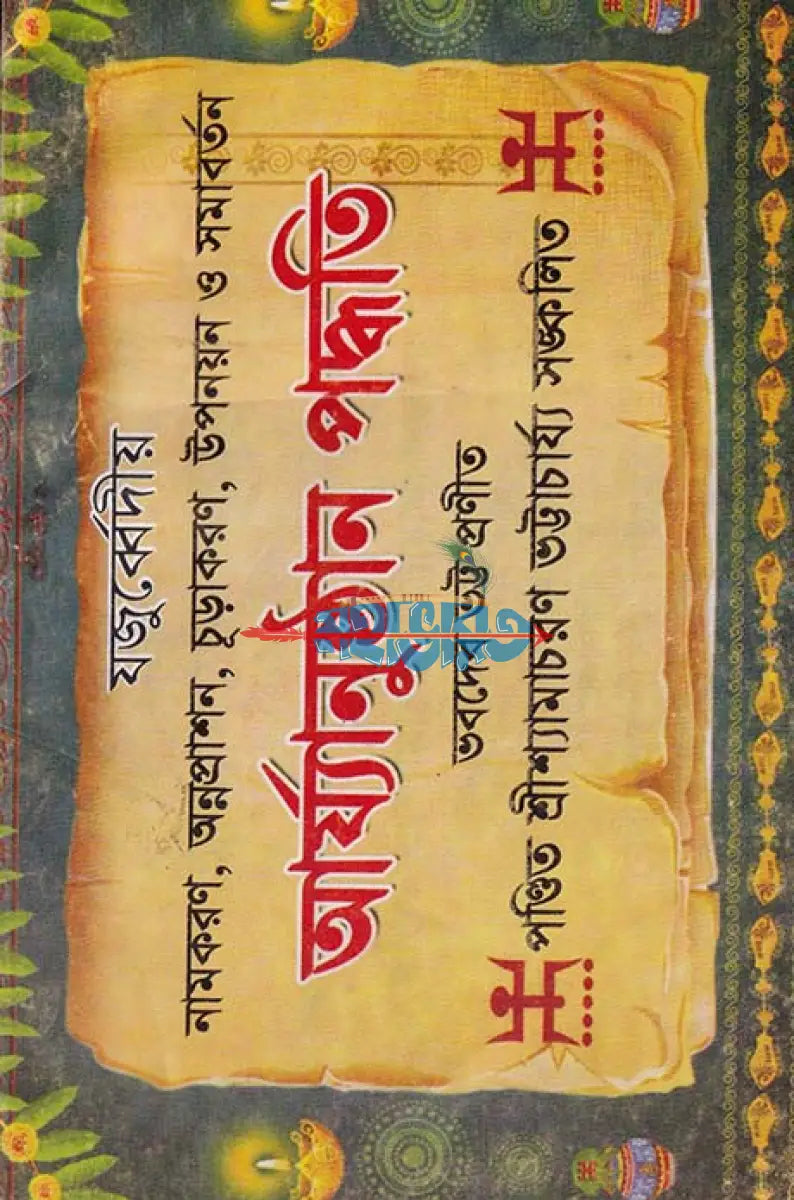 যজুর্ব্বেদীয়
নামকরণ, অন্নপ্রাশন, চূড়াকরণ, উপনয়ন ও সমাবর্তন
আর্য্যানুষ্ঠান পদ্ধতি
ভবদেব ভট্ট প্রণীত
পণ্ডিত শ্রীশ্যামাচরণ ভট্টাচার্য্য সঙ্কলিত